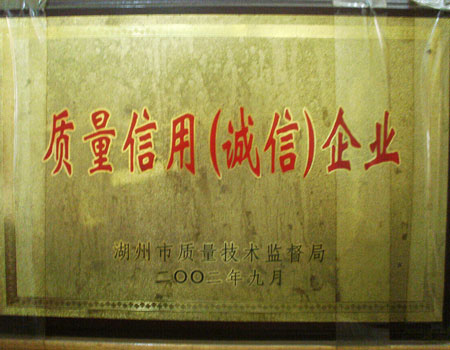 质量信用(诚信)企业
湖州市质量技术监督局
二〇〇二年九月